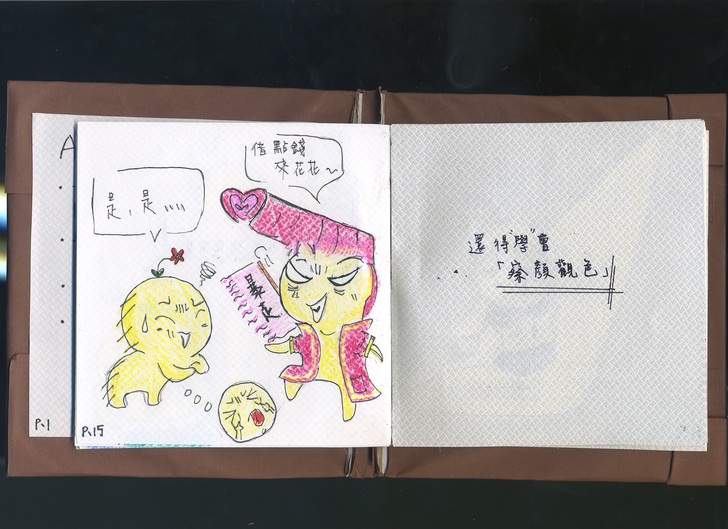 A
借點錢
來花花~
是,是,,,,,
暴走
P.1
P.15
還得"學"會
「察顏觀色」